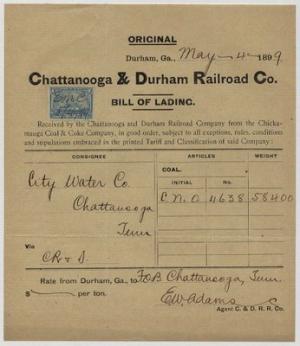 ORIGINAL
Durham, Ga., May 4 1899
Chattanooga & Durham Railroad Co.
BILL OF LADING.
Received by the Chattanooga and Durham Railroad Company from the Chicka-
mauga Coal & Coke Company, in good order, subject to all exceptions, rules, conditions
and stipulations embraced in the printed Tariff and Classification of said Company:
CONSIGNEE ARTICLES WEIGHT
COAL.
INITIAL No.
City Water Co. C.N.O 4638 58400
Chattanooga
Tenn
Via
CR & S.
Rate from Durham, Ga., to FOB Chattanooga, Tenn.
$ per ton. E.W. Adams
Agent C. & D. R. R. Co.